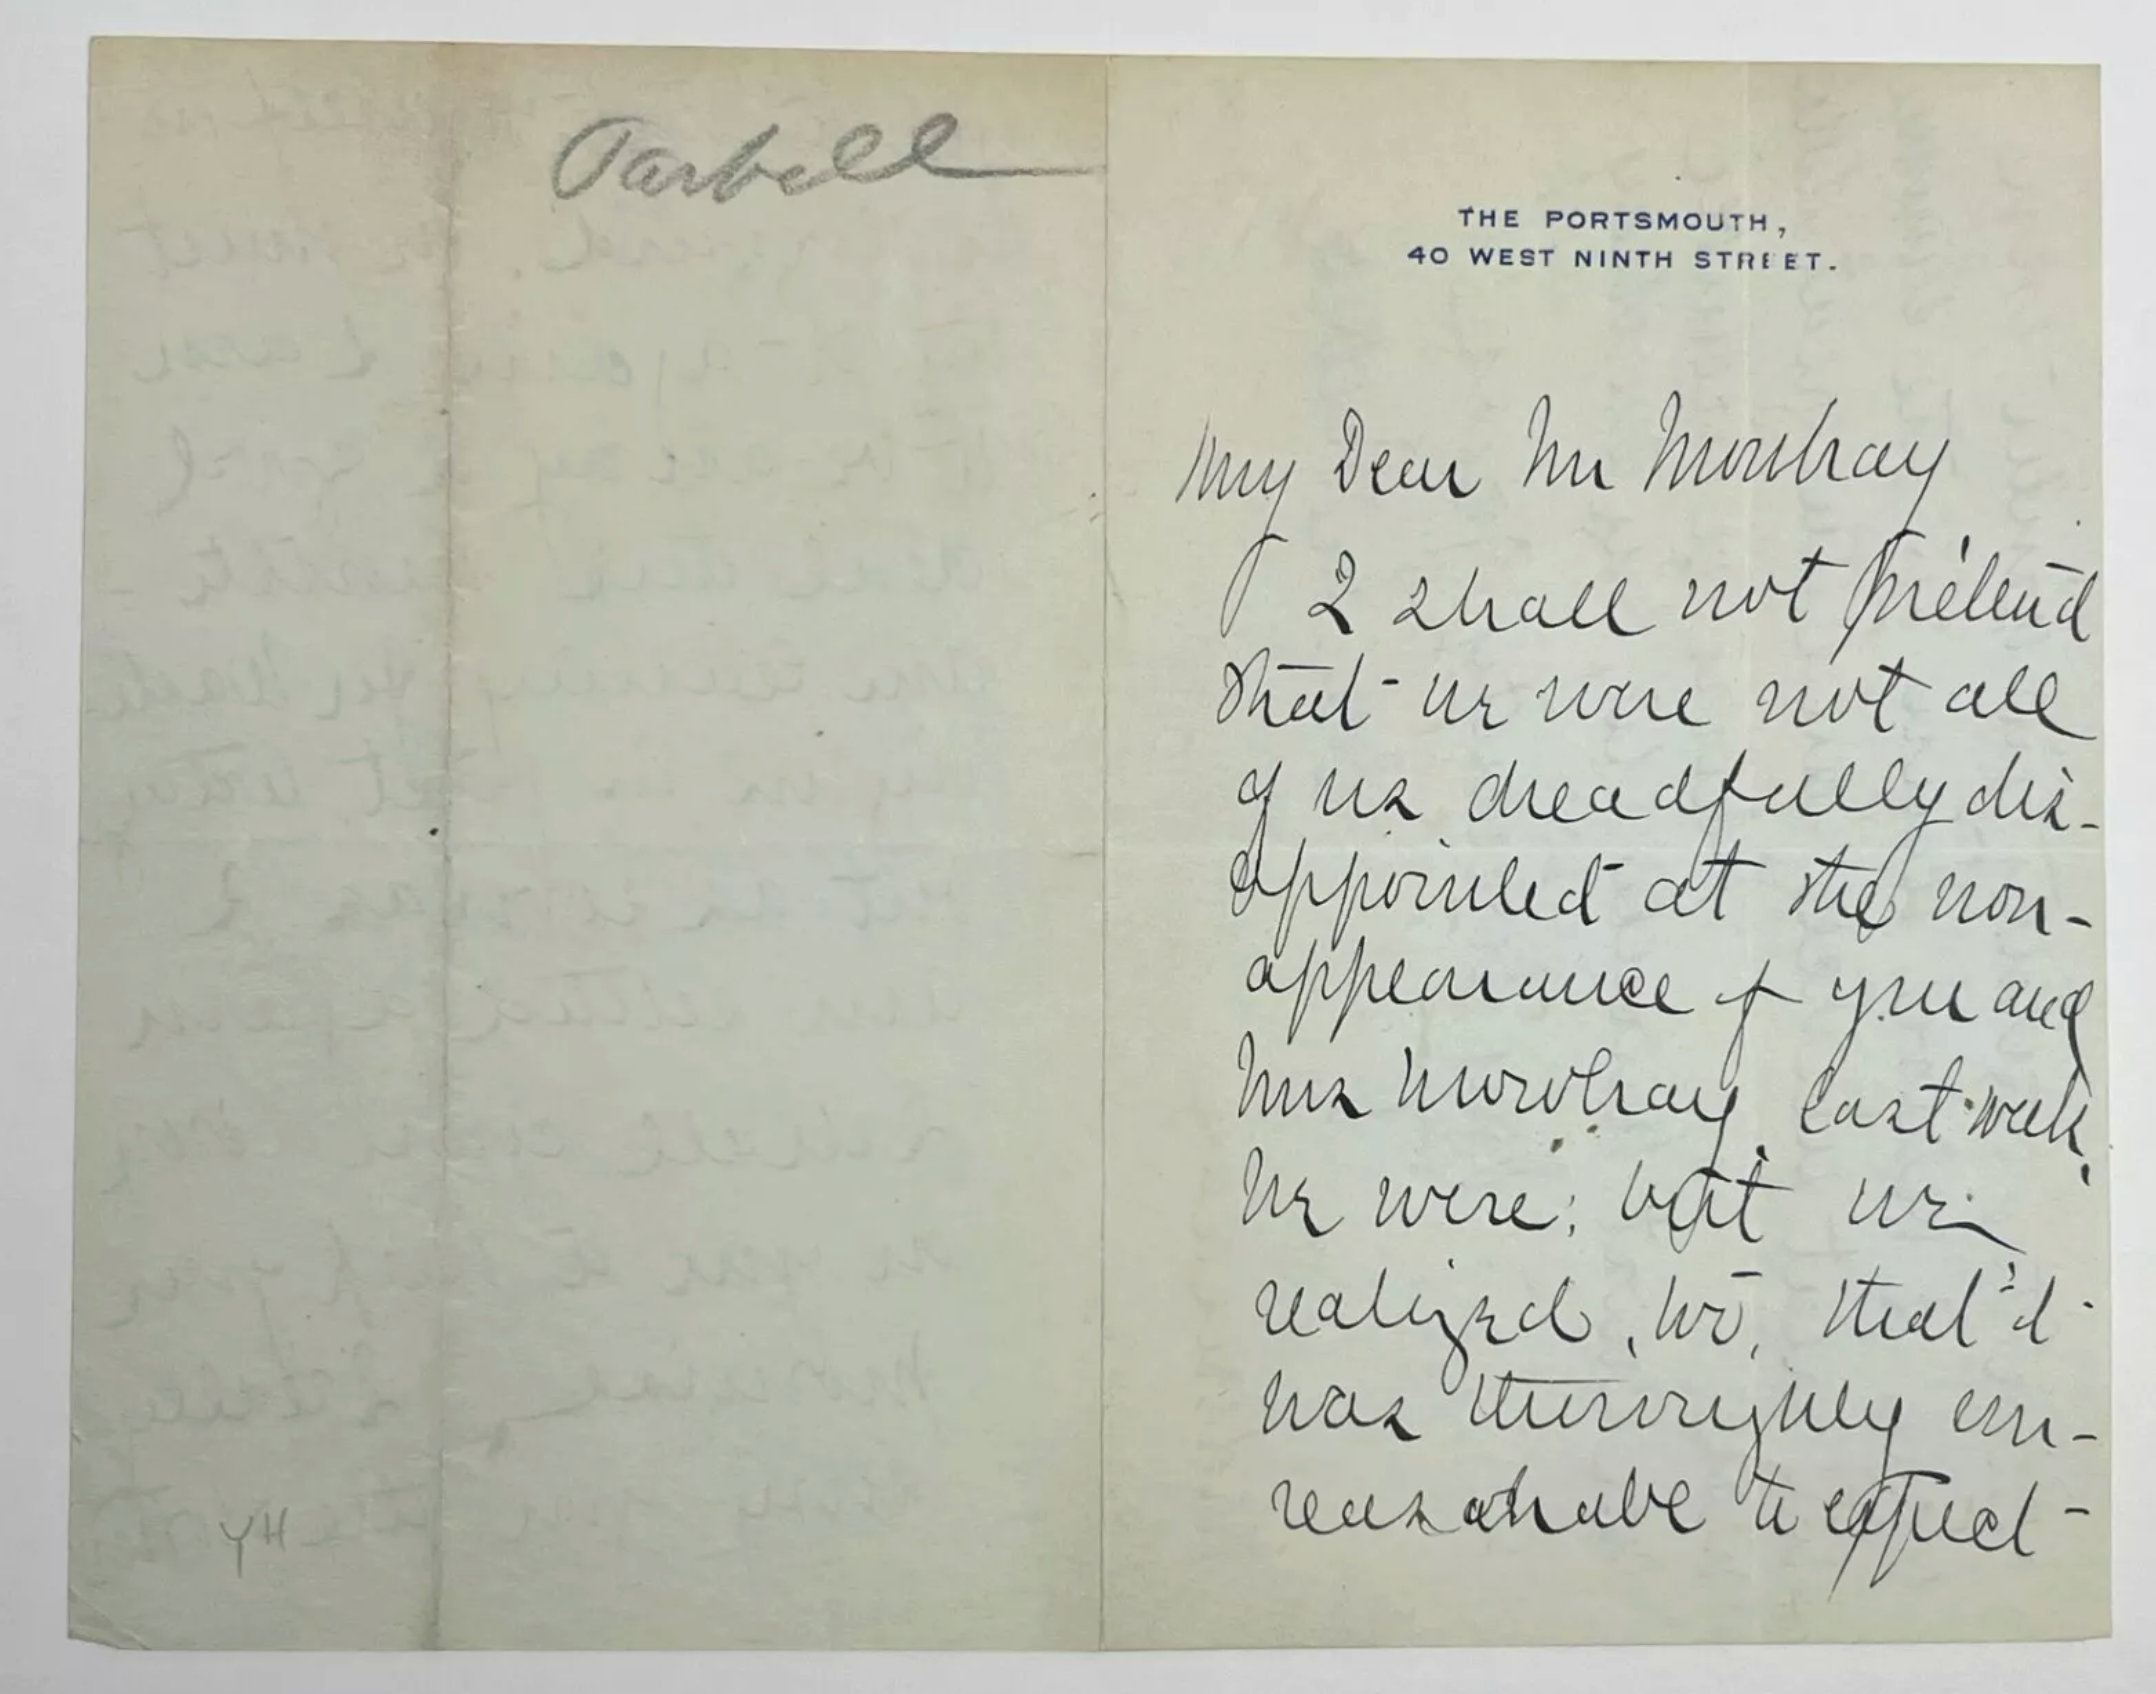 Tarbell
YH
THE PORTSMOUTH,
40 WEST NINTH STREET.
My Dear Mr Mowbray
I shall not pretend
that we were not all
of us dreadfully dis-
appointed at the non-
appearance of you and
Mrs Mowbray last week.
We were; but we
realized, too, that it
was thoroughly un-
reasonable to expect